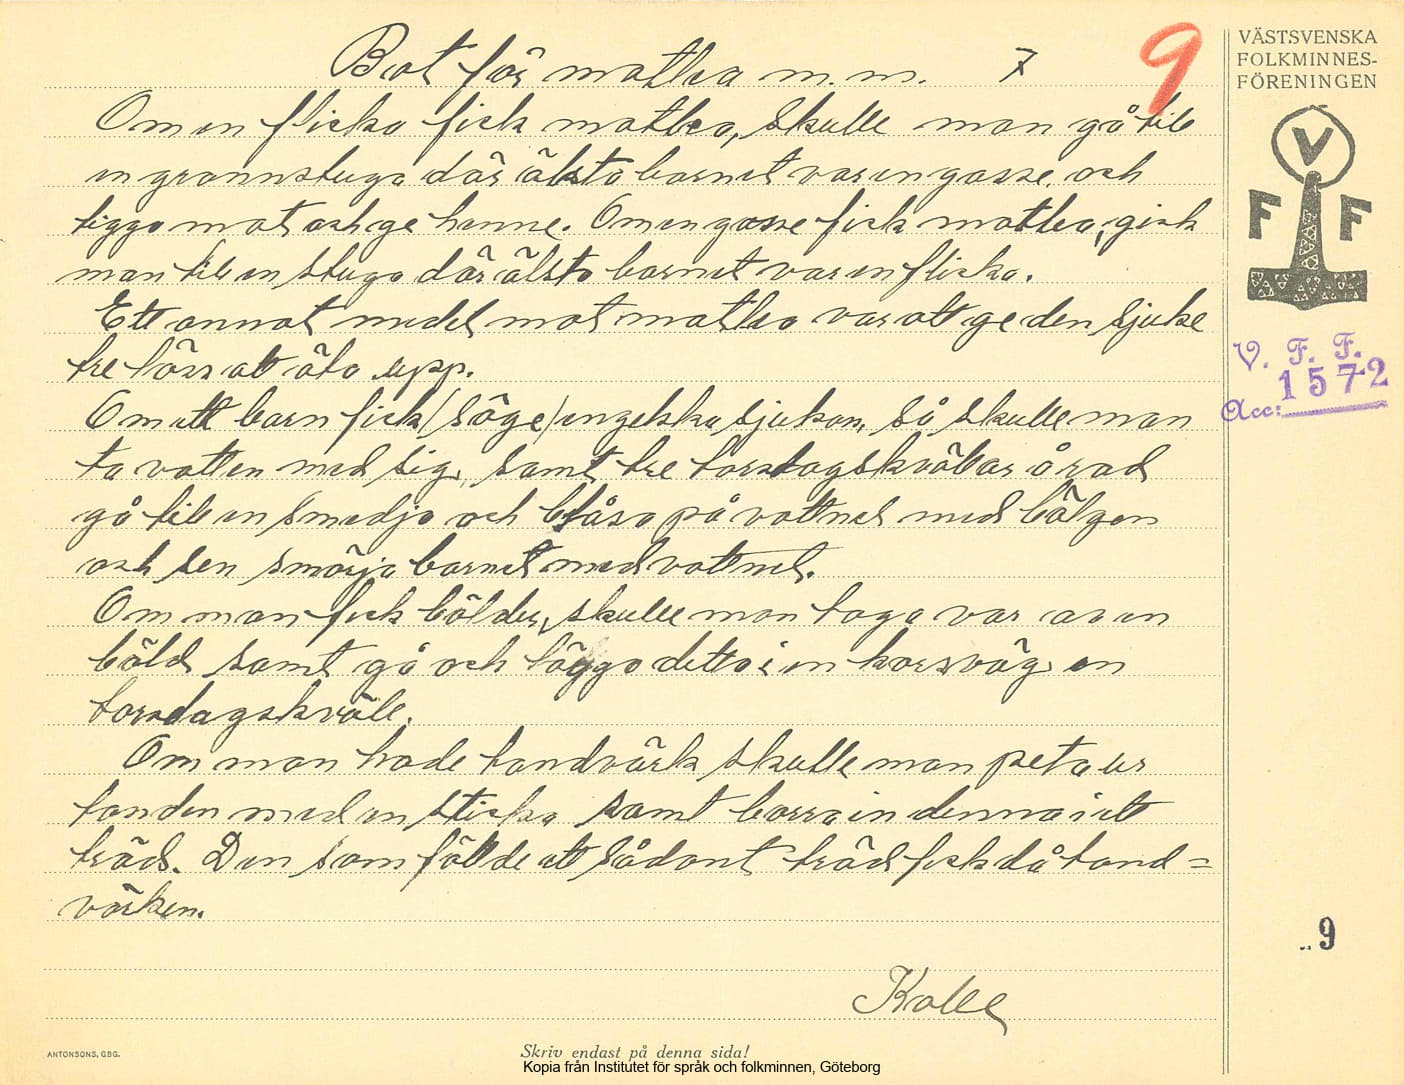 Bot för matleda m.m. 7
9
Om en flicka fick matlea, skulle man gå till
en grannstuga där älsta barnet var en gosse, och
tigga mat och ge henne. Om en gosse fick matlea, gick
man till en stuga där älsta barnet var en flicka.
Ett annat medel mot matlea var att ge den sjuke
tre löss att äta upp.
Om ett barn fick (söge) engelska sjukan, så skulle man
ta vatten med sig, samt tre torsdagskvällar å rad
gå till en smedja och blåsa på vattnet med bälgen
och sen smörja barnet med vattnet.
Om man fick bölder, skulle man taga var av en
böld samt gå och lägga detta i en korsväg en
torsdagskväll.
Om man hade tandvärk skulle man peta ur
tanden med en sticka samt borra in denna i ett
träd. Den som fällde ett sådant träd fick då tand=
värken.
VÄSTSVENSKA
FOLKMINNES-
FÖRENINGEN
V
F F
V. F. F.
Acc: 1572
9
ANTONSONS, GBG.
Skriv endast på denna sida!
Kopia från Institutet för språk och folkminnen, Göteborg